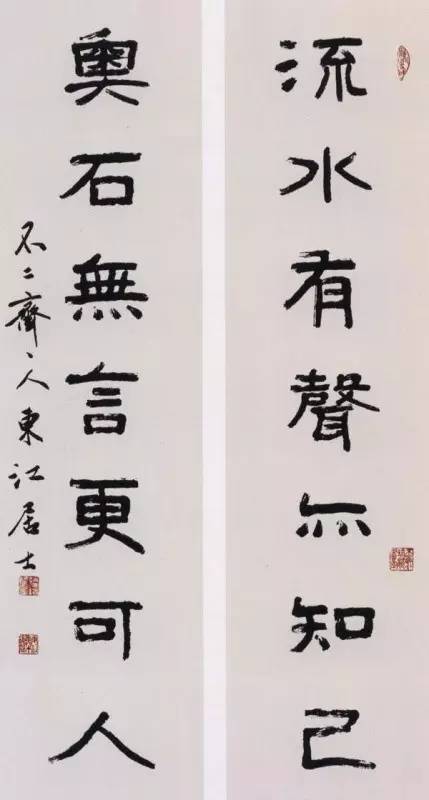 流水有聲亦知己
奧石無言更可人
不二齋人東江居士